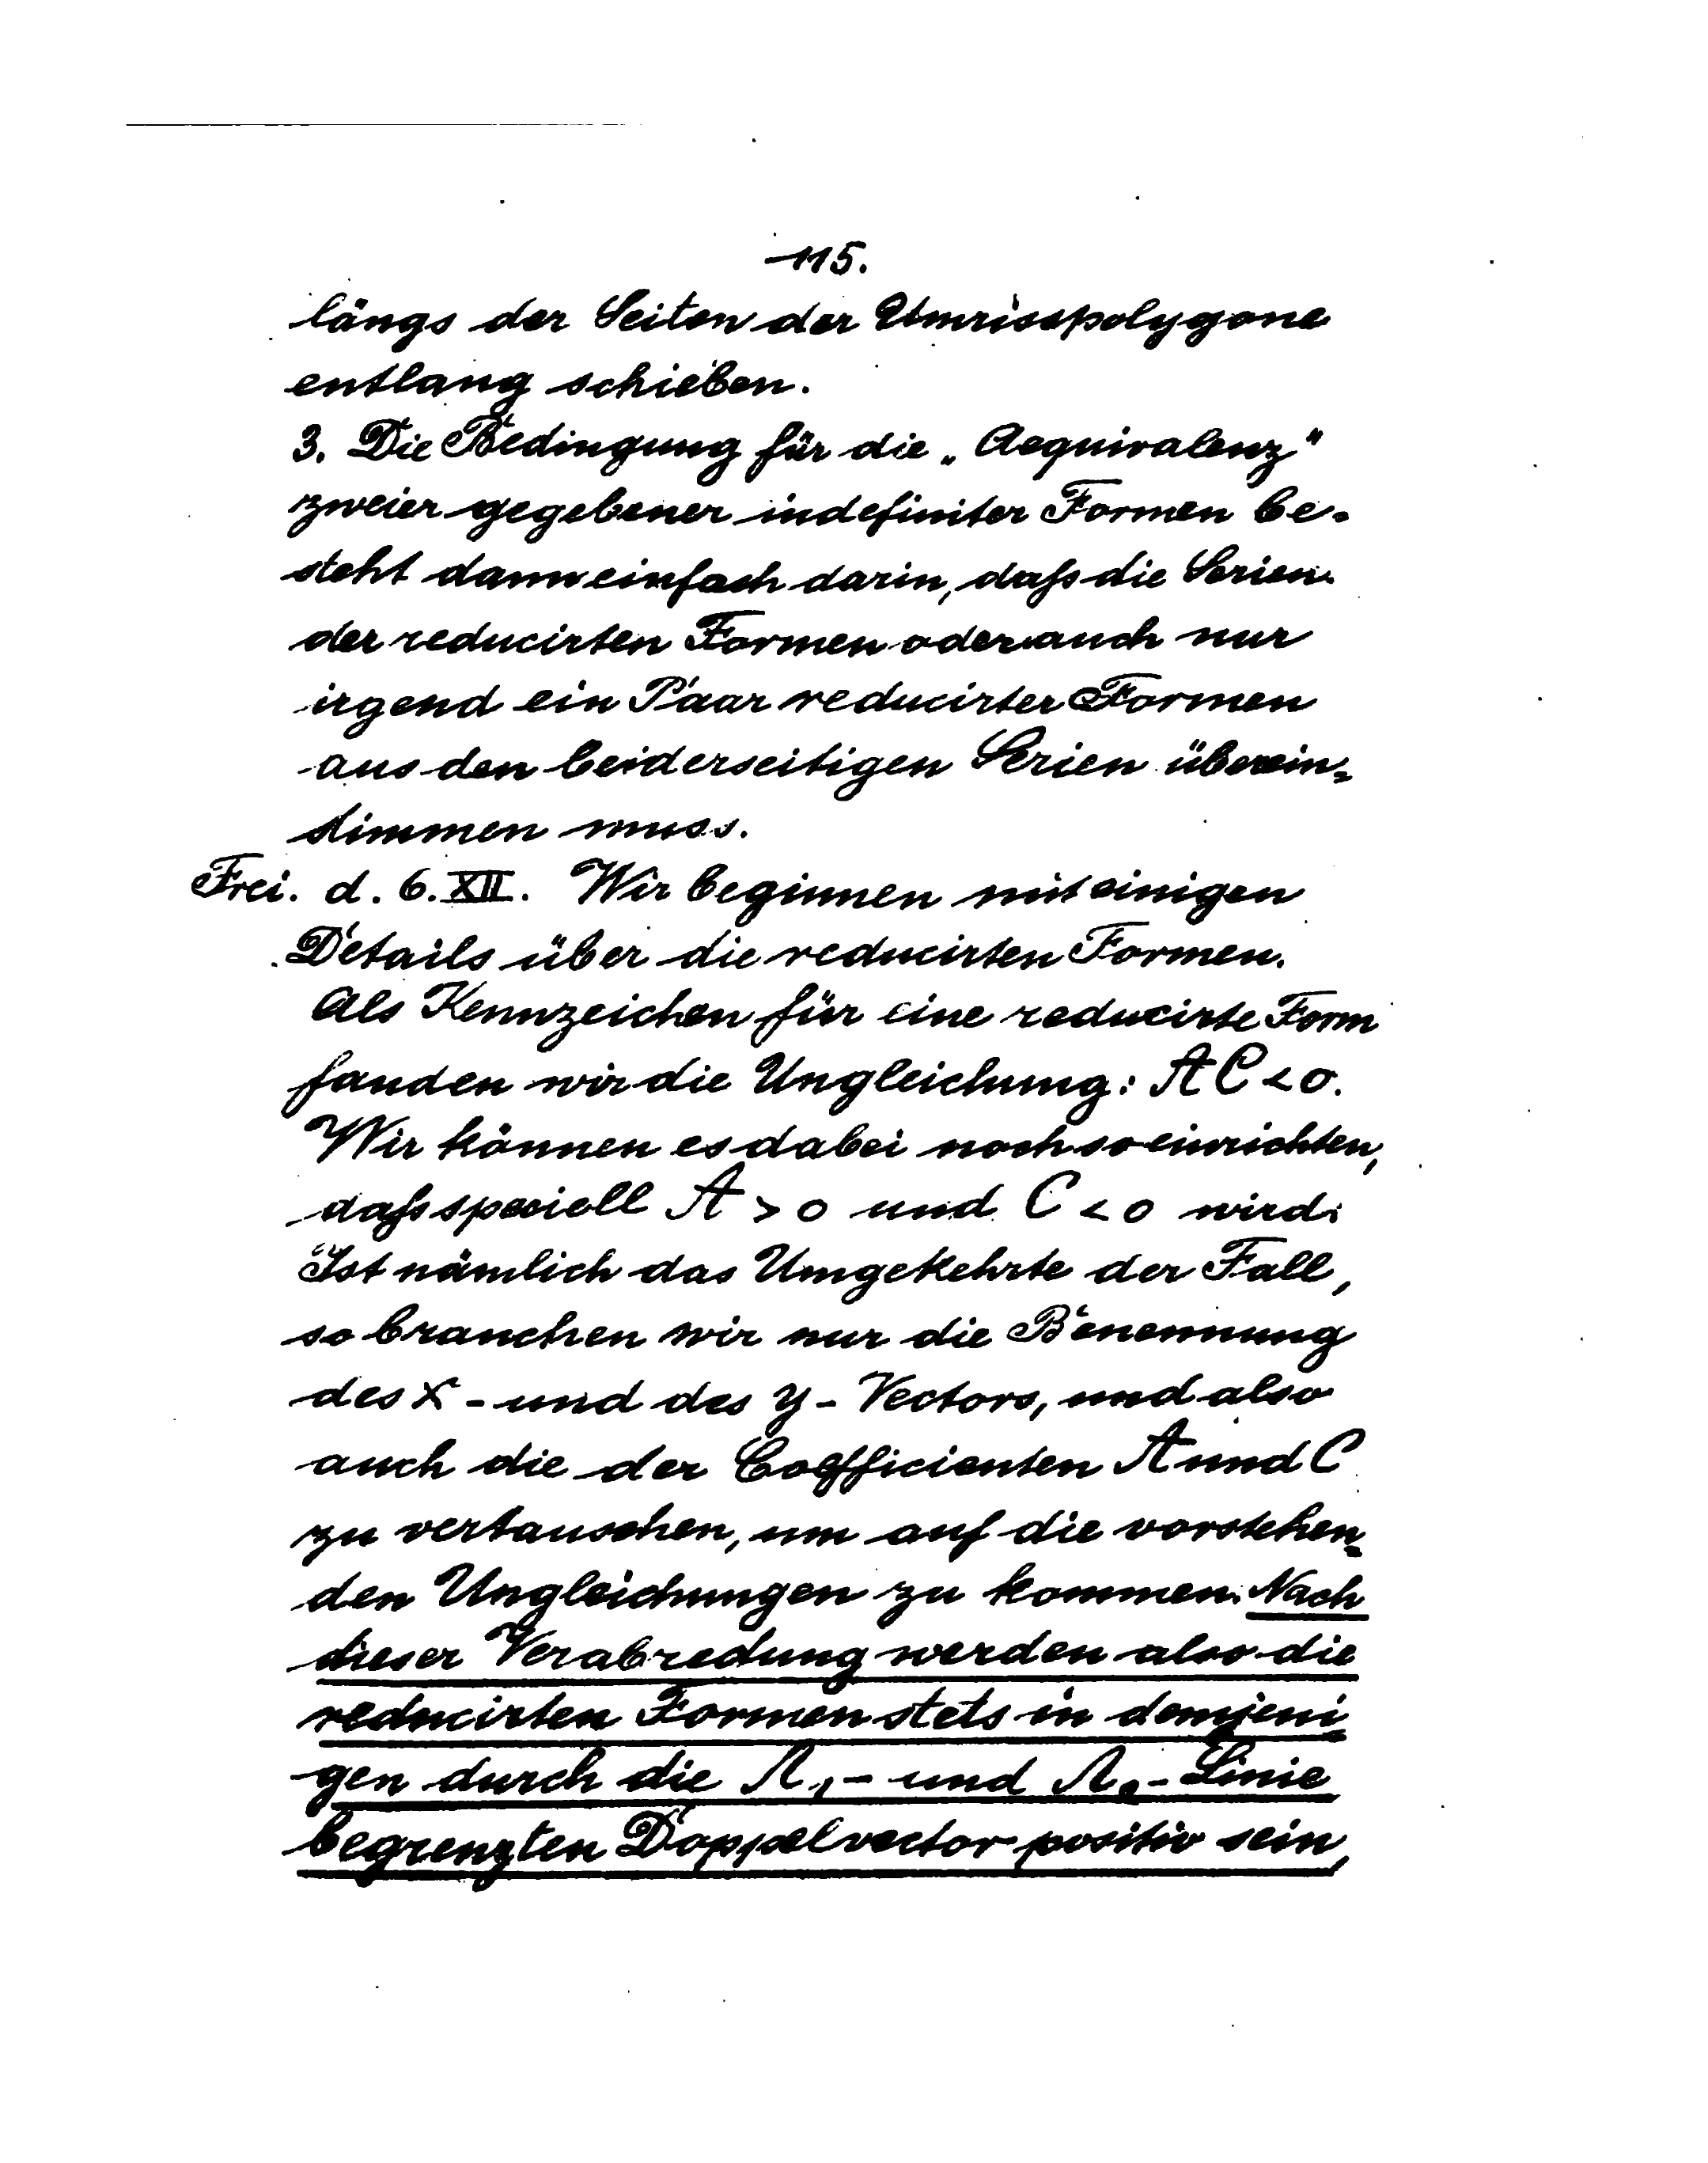 115.
längs der Seiten der Umrisspolygone
entlang schieben.
3. Die Bedingung für die „Aequivalenz"
zweier gegebener indefiniter Formen be-
steht dann einfach darin, daß die Serien
der reducirten Formen oder auch nur
irgend ein Paar reducirter Formen
aus den beiderseitigen Serien überein-
stimmen muss.
Frei. d. 6. XII. Wir beginnen mit einigen
Details über die reducirten Formen.
Als Kennzeichen für eine reducirte Form
fanden wir die Ungleichung: A C < 0.
Wir können es dabei noch so einrichten,
daß speciell A > 0 und C < 0 wird.
Ist nämlich das Umgekehrte der Fall,
so brauchen wir nur die Benennung
des X - und des Y - Vectors, und also
auch die der Coefficienten A und C
zu vertauschen, um auf die vorstehen-
den Ungleichungen zu kommen. Nach
dieser Verabredung werden also die
reducirten Formen stets in demjeni-
gen durch die Λ₁- und Λ₂- Linie
begrenzten Doppelvector positiv sein,